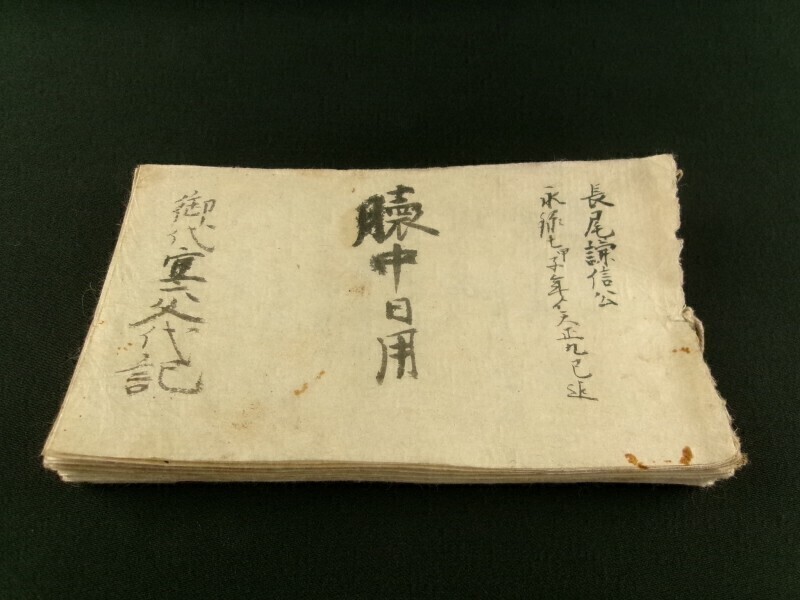 長尾謙信公
永禄七甲子年ゟ天正九巳迄
懐中日用
御代官父代記